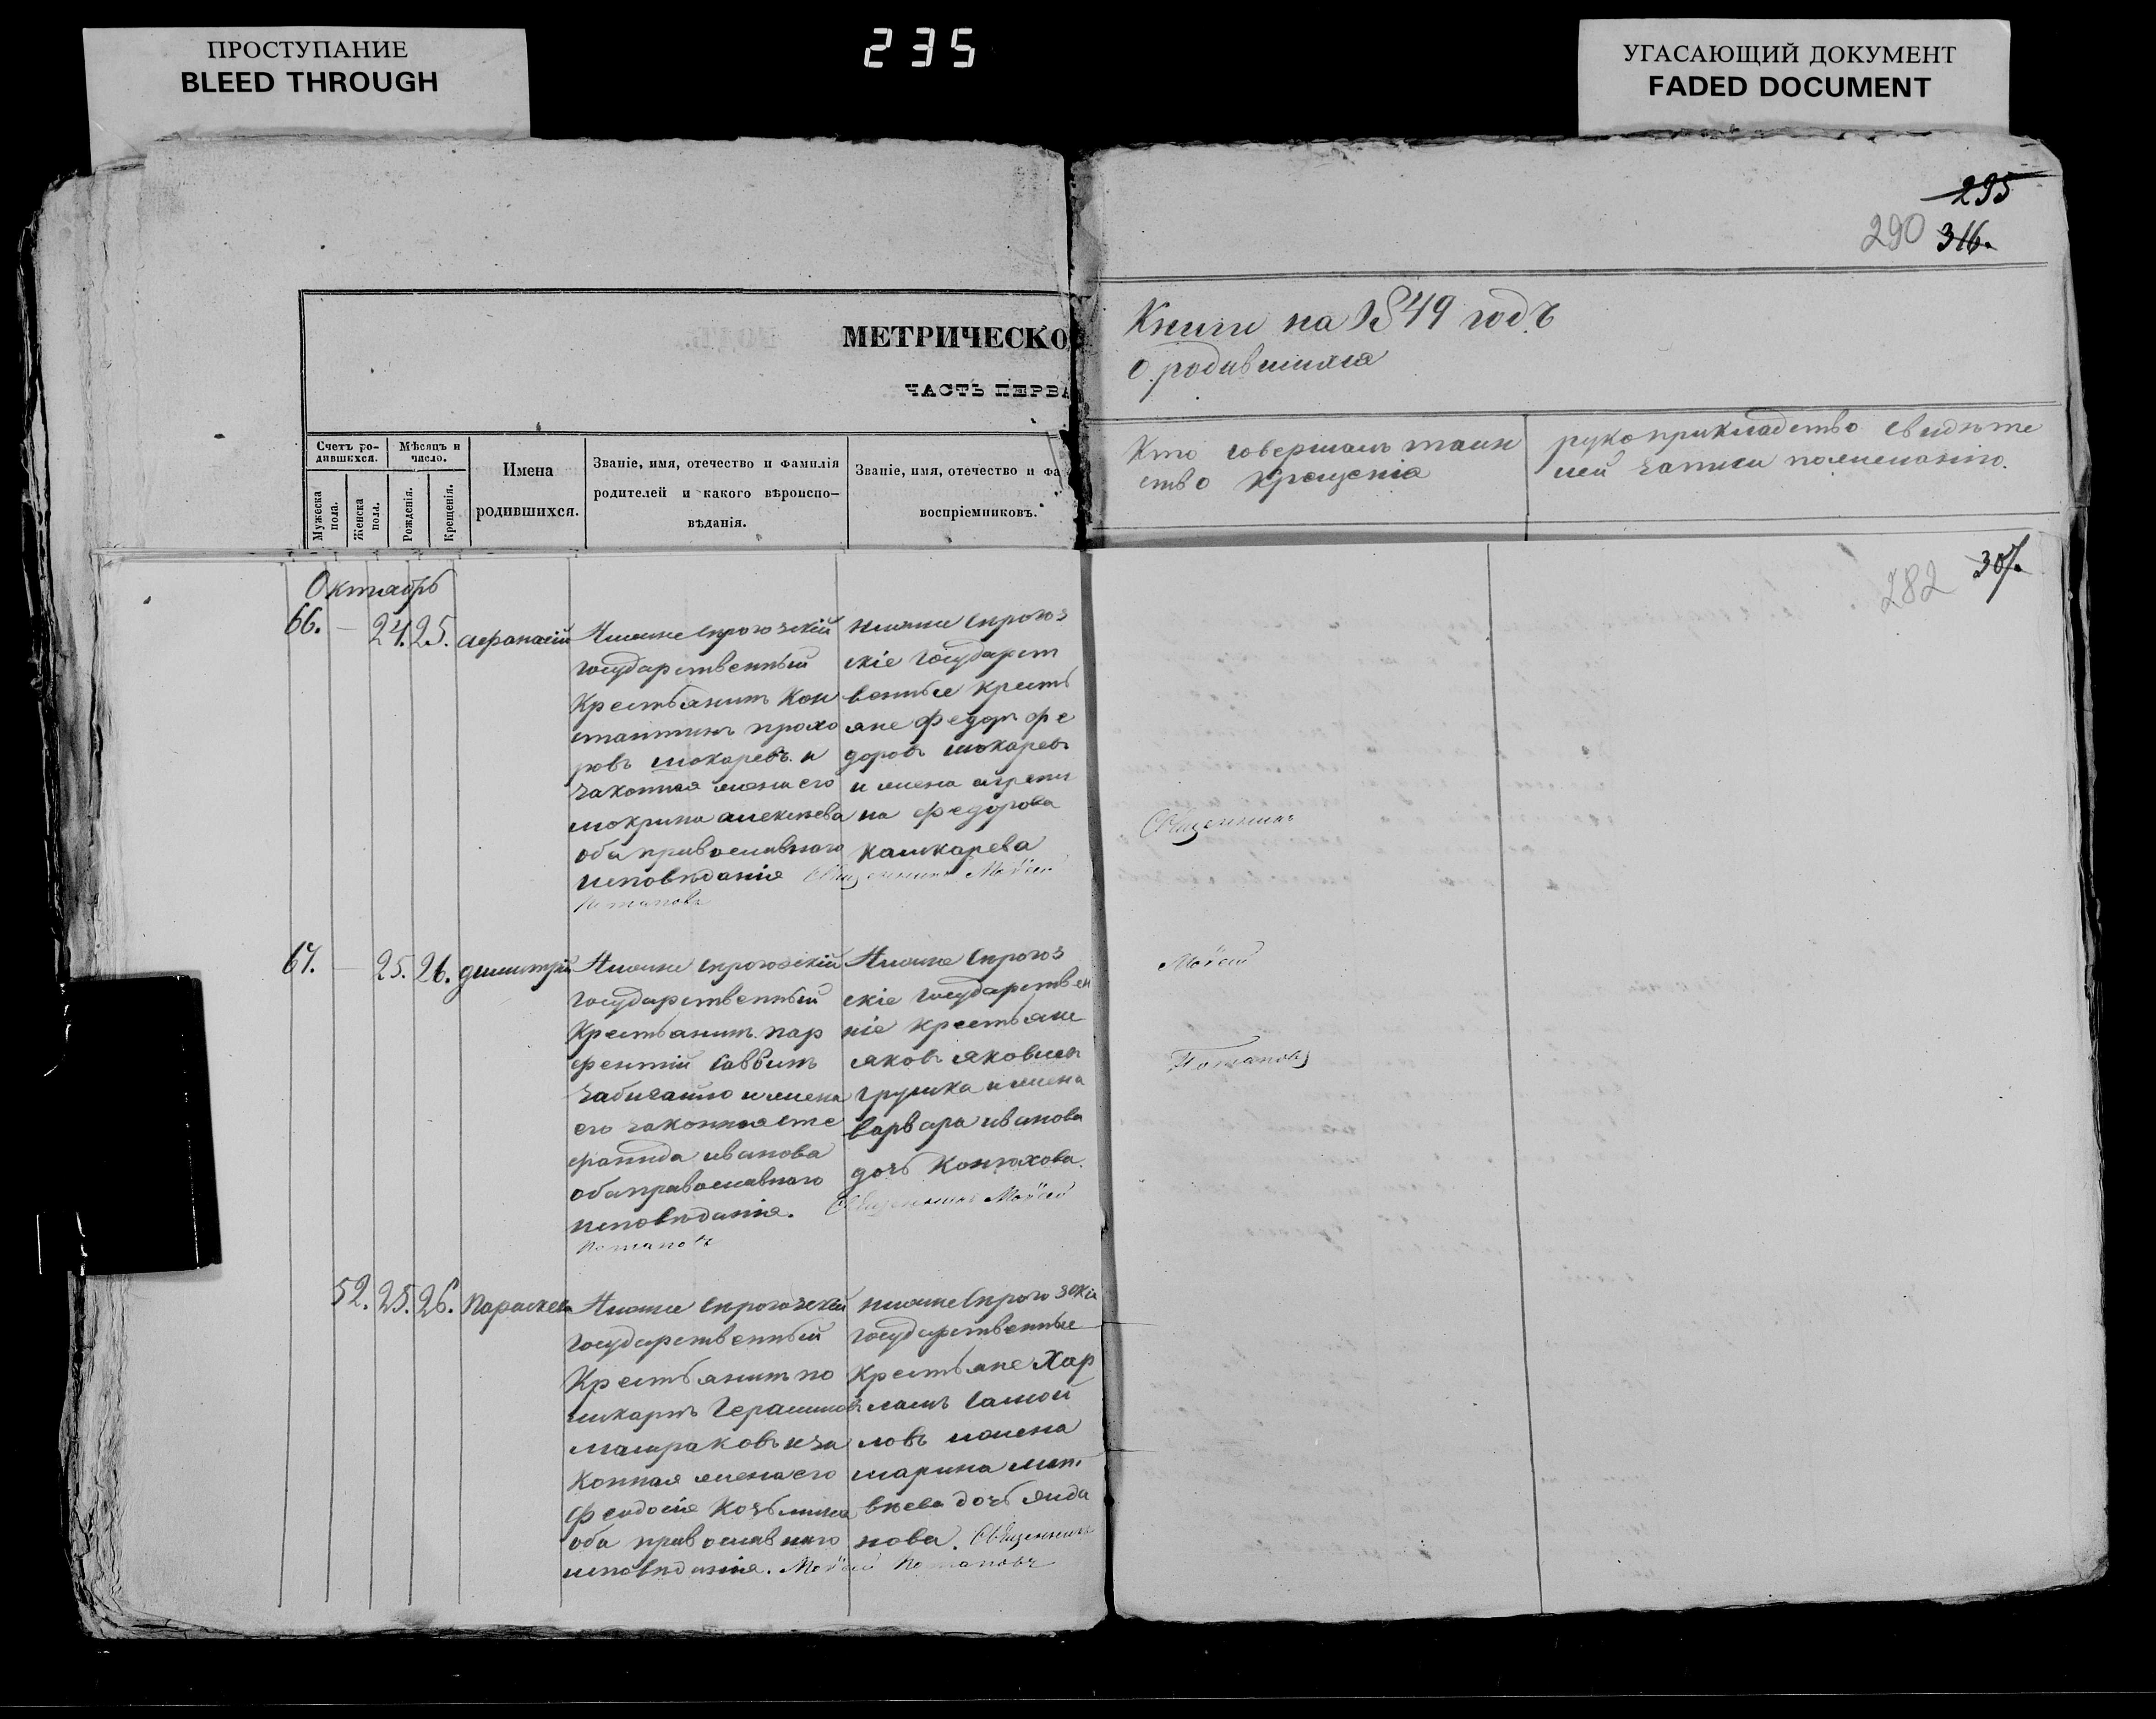 ПРОСТУПАНИЕ
BLEED THROUGH
235
УГАСАЮЩИЙ ДОКУМЕНТ
FADED DOCUMENT
295
290 316.
МЕТРИЧЕСКО
ЧАСТЬ ПЕРВА
Книги на 1849 годъ
о родившихся
Счетъ ро-
дившихся.
Мѣсяцъ и
число.
Мужеска
пола.
Женска
пола.
Рожденія.
Крещенія.
Имена
родившихся.
Званіе, имя, отечество и фамилія
родителей и какого вѣроиспо-
вѣданія.
Званіе, имя, отечество и фа
воспріемниковъ.
Кто совершалъ таин
ство крещенія
рукоприкладство свидѣте
лей записи по желанію.
282 307.
Октябрь
66. — 24. 25. Афанасій
Нижне Сѣрогозскій
государственный
Крестьянинъ Кон
стантинъ прохо
ровъ токаревъ и
законная жена его
мокрина алексѣева
оба православнаго
исповѣданія Священникъ Мойсей
Потаповъ
нижне Сѣрогоз
скіе государст
венные кресть
яне Федоръ фе
доровъ токаревъ
и жена агрепи
на Федорова
кашкарева
Священникъ
Мойсей
Потаповъ
67. — 25. 26. димитрій
Нижне Сѣрогозскій
государственный
Крестьянинъ пар
фентій Саввинъ
Забигайло и жена
его законная сте
фанида иванова
оба православнаго
исповѣданія.
Священникъ Мойсей
Потаповъ
Нижне Сѣрогоз
скіе государствен
ніе крестьяне
яковъ яковлев
грушка и жена
варвара иванова
дочь Конюхова.
52. 25. 26. Параскева
Нижне Сѣрогозскій
государственный
Крестьянинъ по
ликарпъ Герасимовъ
машраковъ и за
конная жена его
Феодосія Козьмина
оба православнаго
исповѣданія. Мойсей Потаповъ
нижне Сѣрогозскіе
государственные
крестьяне Хар
лампъ Самой
ловъ и жена
марина мат
вѣева дочь
нова. Священникъ